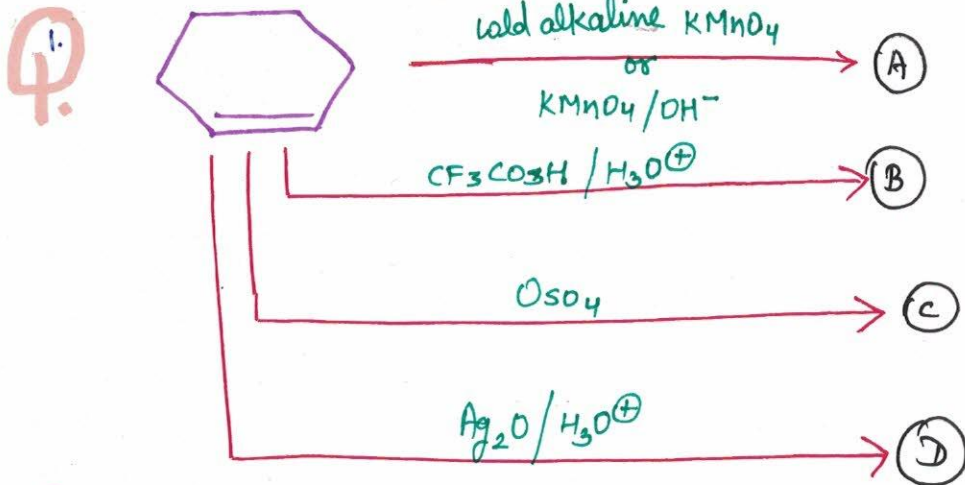 Q 1.
cold alkaline KMnO4
or
KMnO4/OH⁻
A
CF3CO3H / H3O⊕
B
OsO4
C
Ag2O / H3O⊕
D